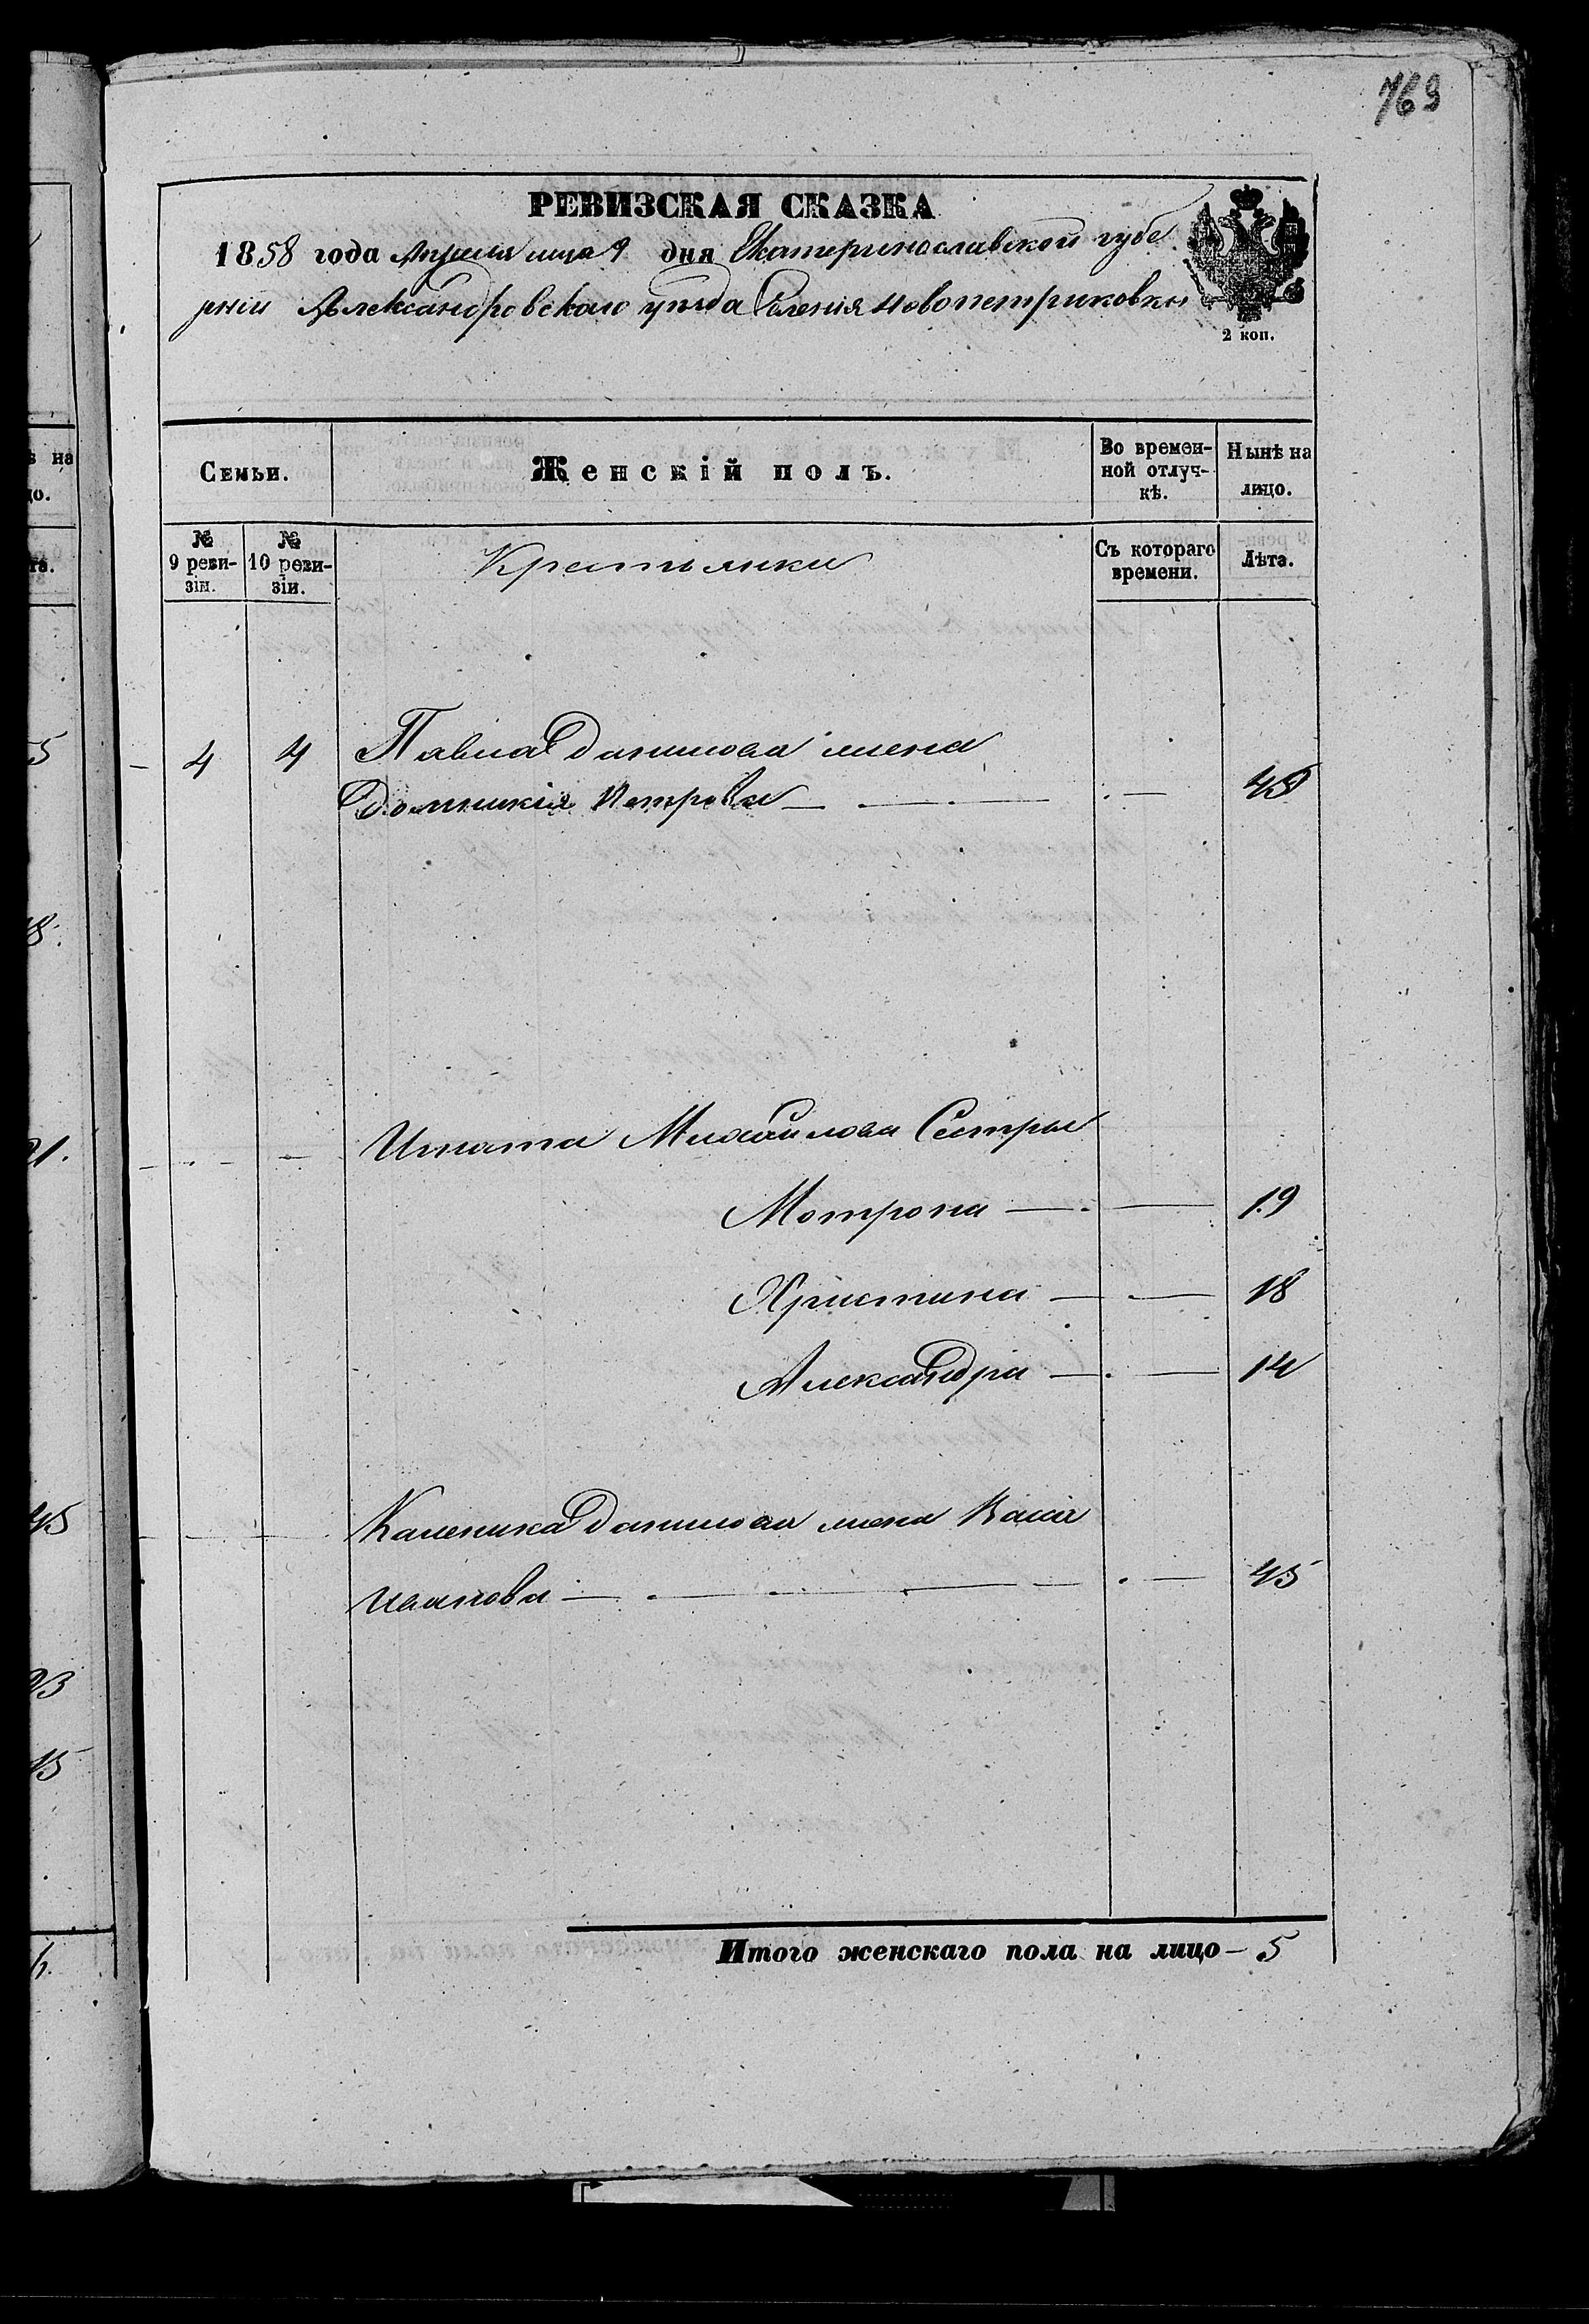 769
РЕВИЗСКАЯ СКАЗКА
1858 года Апреля мца 9 дня Екатеринославской губе
рніи Александровского уезда Селенія Новопетриковки
2 коп.
Семьи.
Женскій полъ.
Во времен-
ной отлуч-
кѣ.
Нынѣ на
лицо.
№
9 реви-
зіи.
№
10 реви-
зіи.
Крестьянки
Съ котораго
времени.
Лѣта.
4 4 Павла Данилова жена
Домникія Петрова
Ипата Михайлова Сестры
Мотрона 19
Христина 18
Александра 14
Каленика Данилова жена Васса
Иванова 45
Итого женскаго пола на лицо 5